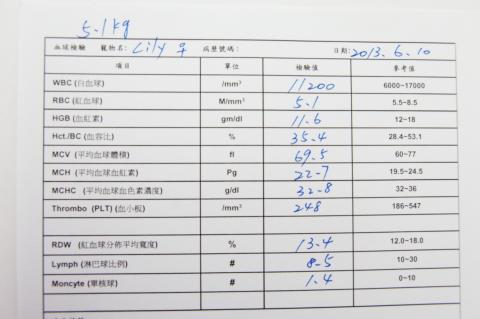 5.1kg
血球檢驗 寵物名: Lily ♀ 病歷號碼: 日期: 2013. 6. 10
項目 單位 檢驗值 參考值
WBC (白血球) /mm³ 11200 6000~17000
RBC (紅血球) M/mm³ 5.1 5.5~8.5
HGB (血紅素) gm/dl 11.6 12~18
Hct./BC (血容比) % 35.4 28.4~53.1
MCV (平均血球體積) fl 69.5 60~77
MCH (平均血球血紅素) Pg 22.7 19.5~24.5
MCHC (平均血球血色素濃度) g/dl 32.8 32~36
Thrombo (PLT) (血小板) /mm³ 248 186~547
RDW (紅血球分佈平均寬度) % 13.4 12.0~18.0
Lymph (淋巴球比例) # 8.5 10~30
Moncyte (單核球) # 1.4 0~10